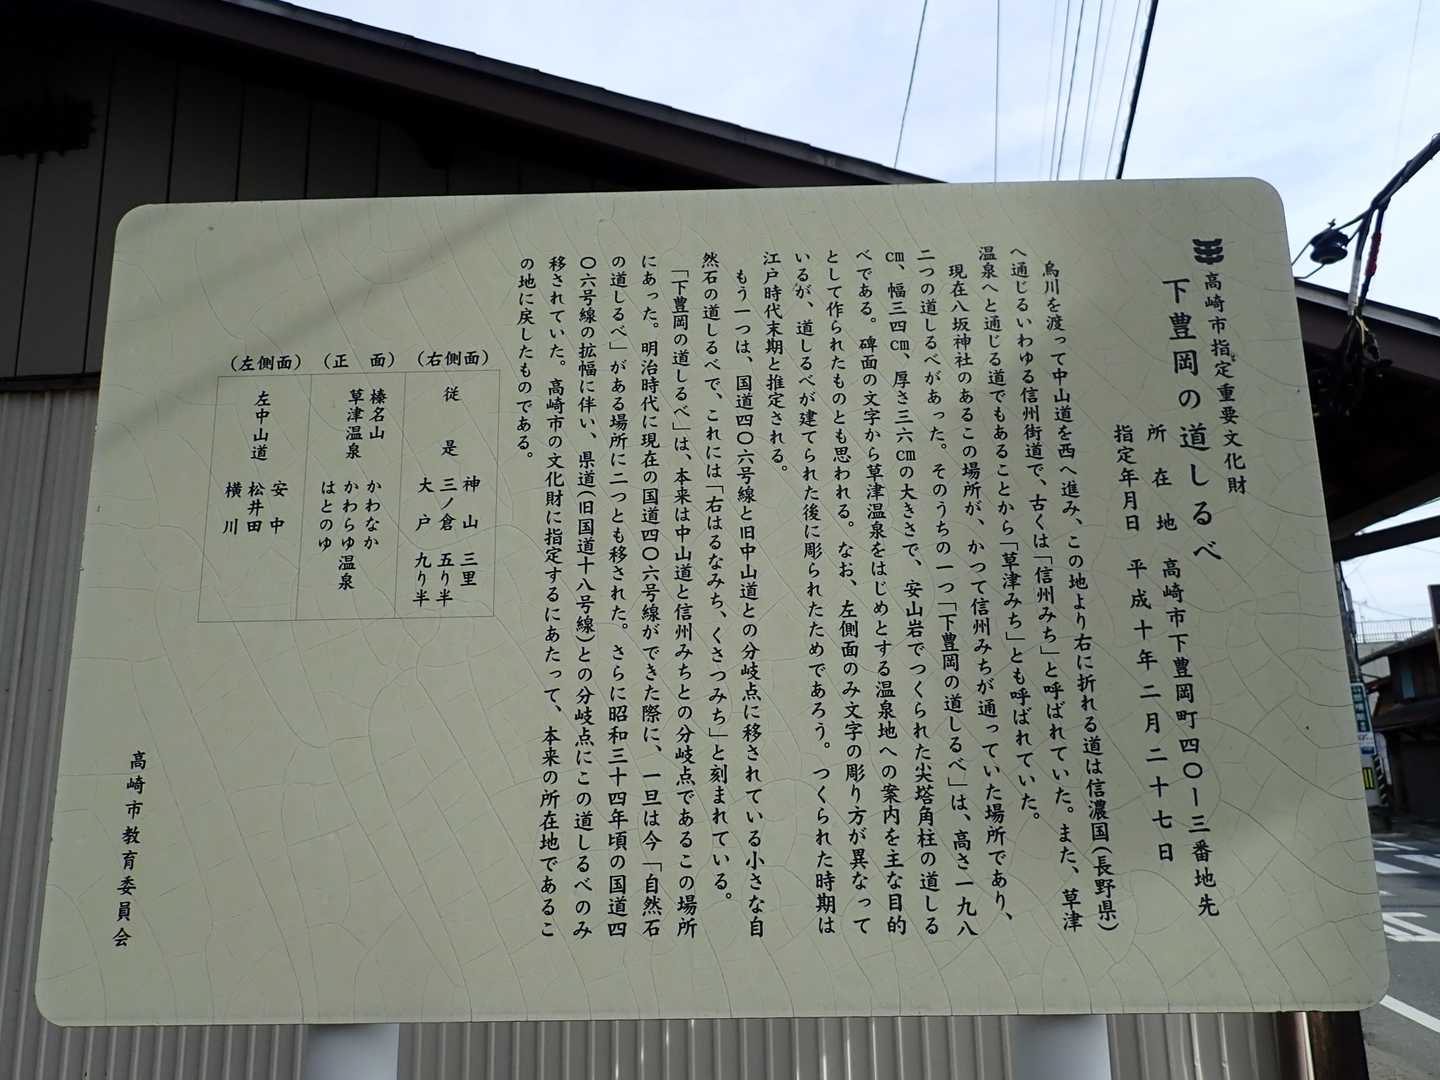 高崎市指定重要文化財
下豊岡の道しるべ
所在地 高崎市下豊岡町四〇ー三番地先
指定年月日 平成十年二月二十七日
烏川を渡って中山道を西へ進み、この地より右に折れる道は信濃国(長野県)
へ通じるいわゆる信州街道で、古くは「信州みち」と呼ばれていた。また、草津
温泉へと通じる道でもあることから「草津みち」とも呼ばれていた。
現在八坂神社のあるこの場所が、かつて信州みちが通っていた場所であり、
二つの道しるべがあった。そのうちの一つ「下豊岡の道しるべ」は、高さ一九八
cm、幅三四cm、厚さ三六cmの大きさで、安山岩でつくられた尖塔角柱の道しる
べである。碑面の文字から草津温泉をはじめとする温泉地への案内を主な目的
として作られたものとも思われる。なお、左側面のみ文字の彫り方が異なって
いるが、道しるべが建てられた後に彫られたためであろう。つくられた時期は
江戸時代末期と推定される。
もう一つは、国道四〇六号線と旧中山道との分岐点に移されている小さな自
然石の道しるべで、これには「右はるなみち、くさつみち」と刻まれている。
「下豊岡の道しるべ」は、本来は中山道と信州みちとの分岐点であるこの場所
にあった。明治時代に現在の国道四〇六号線ができた際に、一旦は今「自然石
の道しるべ」がある場所に二つとも移された。さらに昭和三十四年頃の国道四
〇六号線の拡幅に伴い、県道(旧国道十八号線)との分岐点にこの道しるべのみ
移されていた。高崎市の文化財に指定するにあたって、本来の所在地であるこ
の地に戻したものである。
(右側面)
従是
神山 三里
三ノ倉 五り半
大戸 九り半
(正面)
榛名山
草津温泉
かわなか
かわらゆ温泉
はとのゆ
(左側面)
左中山道
安中
松井田
横川
高崎市教育委員会